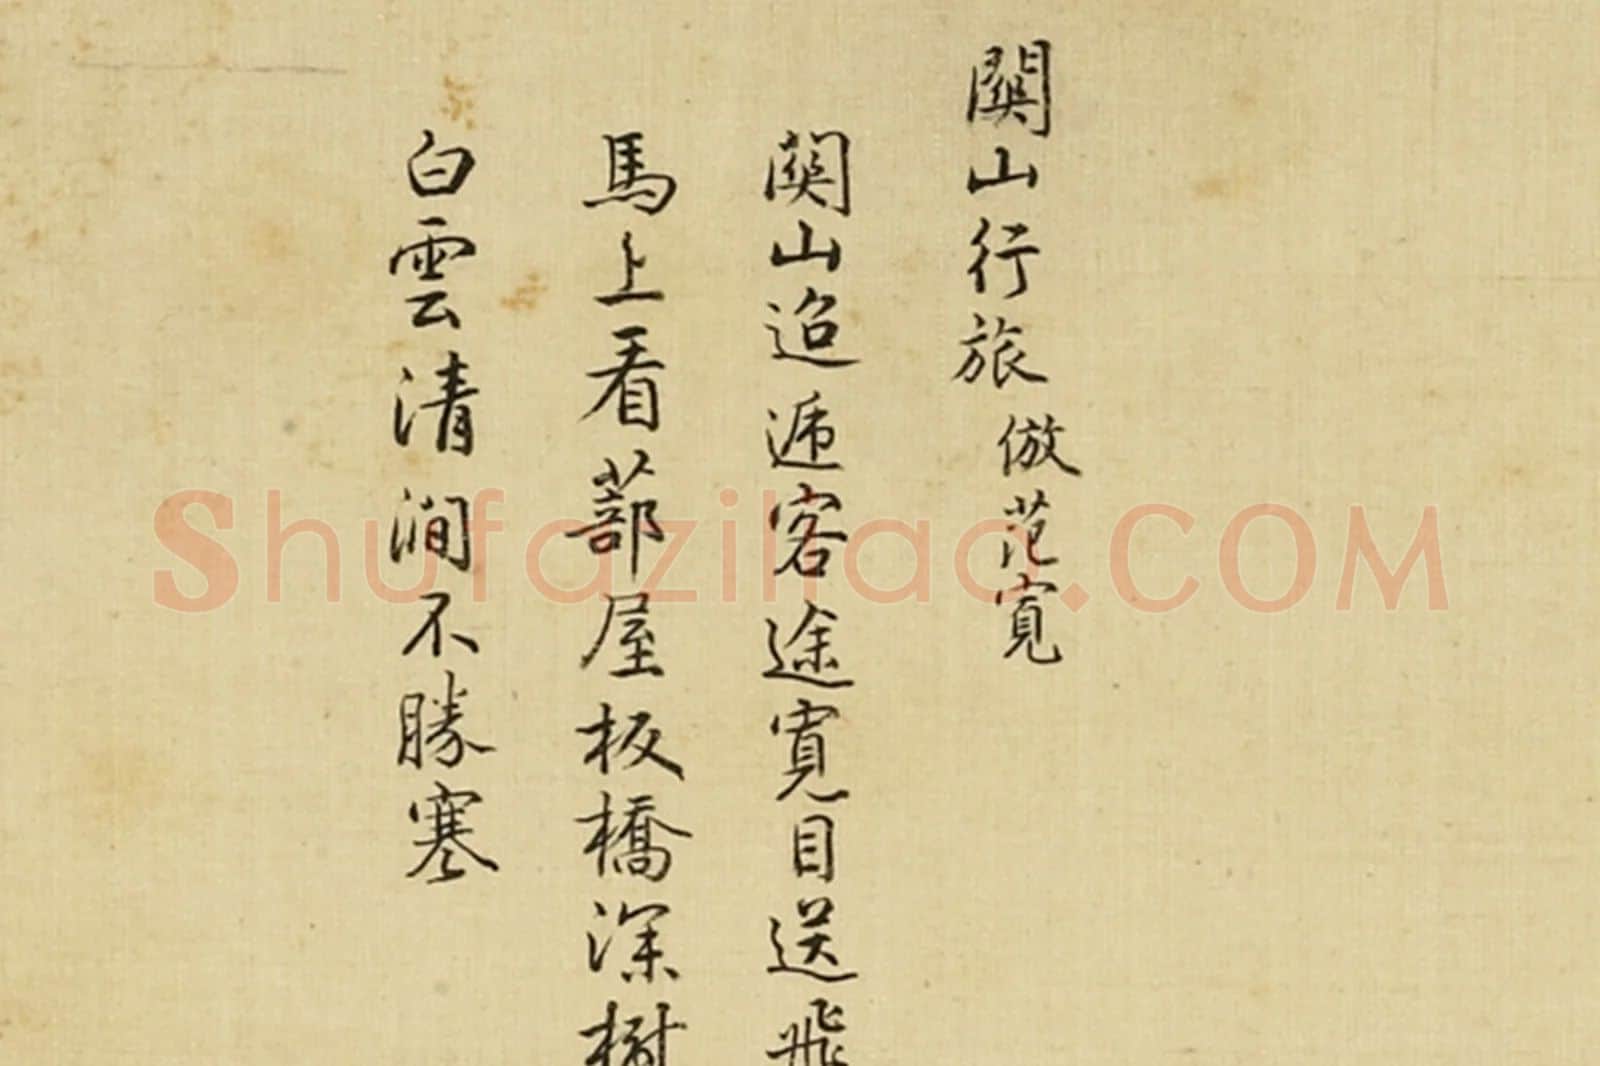 關山行旅倣范寬
關山迢遞客途寬目送飛
馬上看蔀屋板橋深樹
白雲清澗不勝寒
Shufazihao.COM